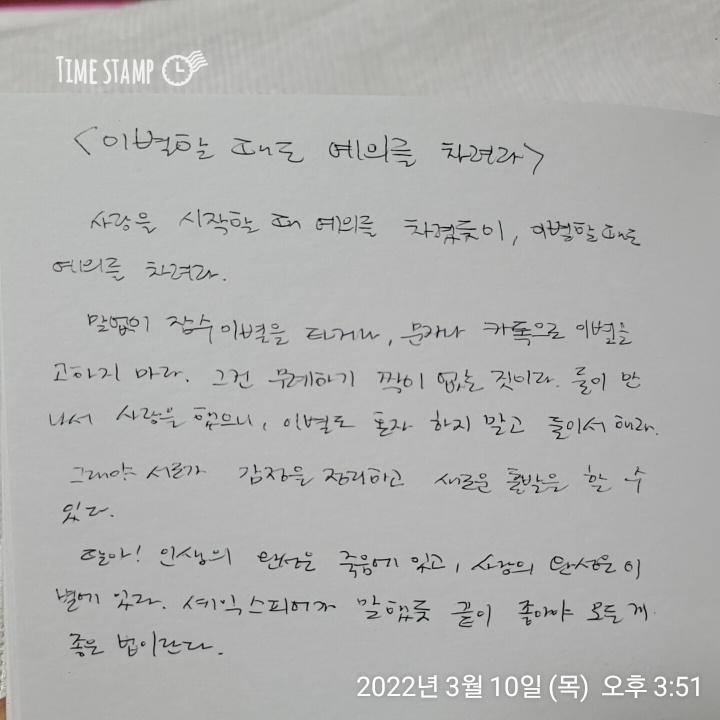 TIME STAMP
<이별할 때도 예의를 차려라>
사랑을 시작할 때 예의를 차렸듯이, 이별할때도
예의를 차려라.
말없이 잠수이별을 타거나, 문자나 카톡으로 이별을
고하지 마라. 그건 무례하기 짝이 없는 짓이라. 둘이 만
나서 사랑을 했으니, 이별도 혼자 하지 말고 둘이서 해라.
그래야 서로가 감정을 정리하고 새로운 출발을 할 수
있다.
딸아! 인생의 완성은 죽음에 있고, 사랑의 완성은 이
별에 있다. 셰익스피어가 말했듯 끝이 좋아야 모든 게
좋은 법이란다.
2022년 3월 10일 (목) 오후 3:51